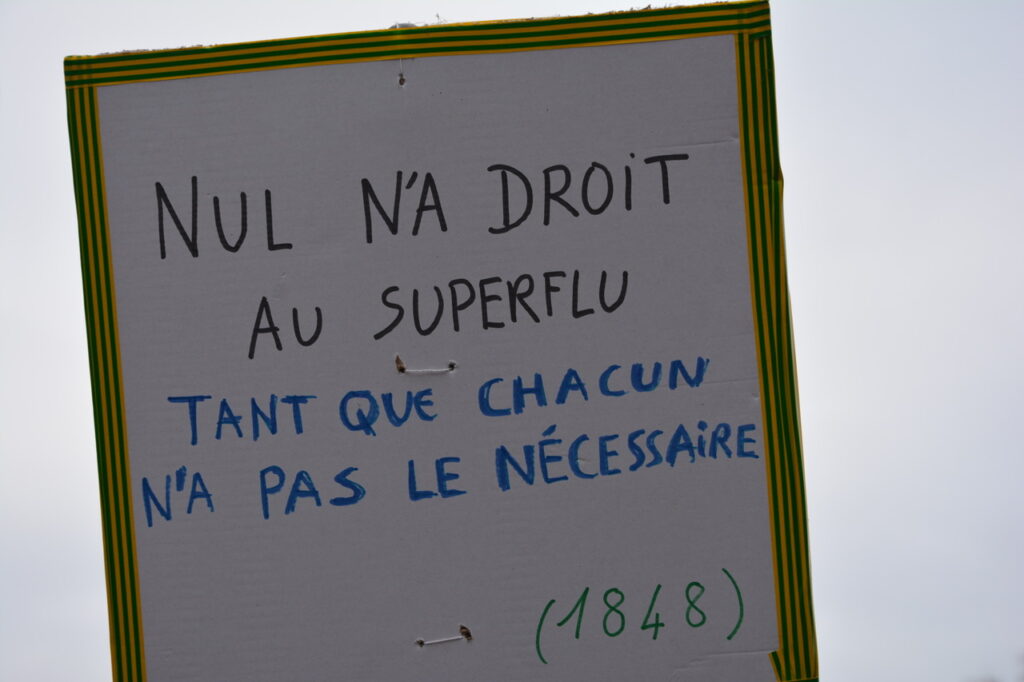 NUL N'A DROiT
AU SUPERFLU
TANT QUE CHACUN
N'A PAS LE NÉCESSAiRE
(1848)